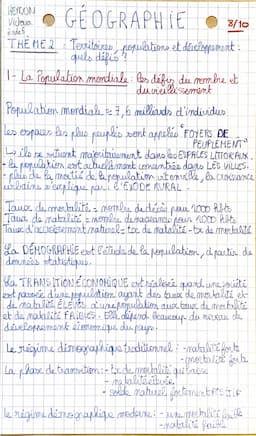 GÉOGRAPHIE
8/10
THÈME 2 : Territoires, populations et développement :
quels défis ?
1- La Population mondiale : les défis du nombre et
du vieillissement
Population mondiale ≈ 7,6 milliards d'individus
Les espaces les plus peuplés sont appelés FOYERS DE
PEUPLEMENT
↳ ils se situent majoritairement dans les ESPACES LITTORAUX.
- la population est actuellement concentrée dans LES VILLES.
- plus de la moitié de la population vit en ville, la croissance
urbaine s'explique par l'EXODE RURAL.
Taux de mortalité = nombre de décès pour 1000 hbts
Taux de natalité = nombre de naissances pour 1000 hbts
Taux d'accroissement naturel = tx de natalité - tx de mortalité
La DÉMOGRAPHIE est l'étude de la population, à partir de
données statistiques.
La TRANSITION ÉCONOMIQUE est réalisée quand une société
est passée d'une population ayant des taux de mortalité et
de natalité ÉLEVÉS à une population aux taux de mortalité
et de natalité FAIBLES. Elle dépend beaucoup du niveau de
développement économique du pays.
Le régime démographique traditionnel : - natalité forte
- mortalité forte
La phase de transition : - tx de mortalité qui baisse
- natalité élevée
- solde naturel fortement POSITIF
Le régime démographique moderne : - une mortalité faible
- natalité faible